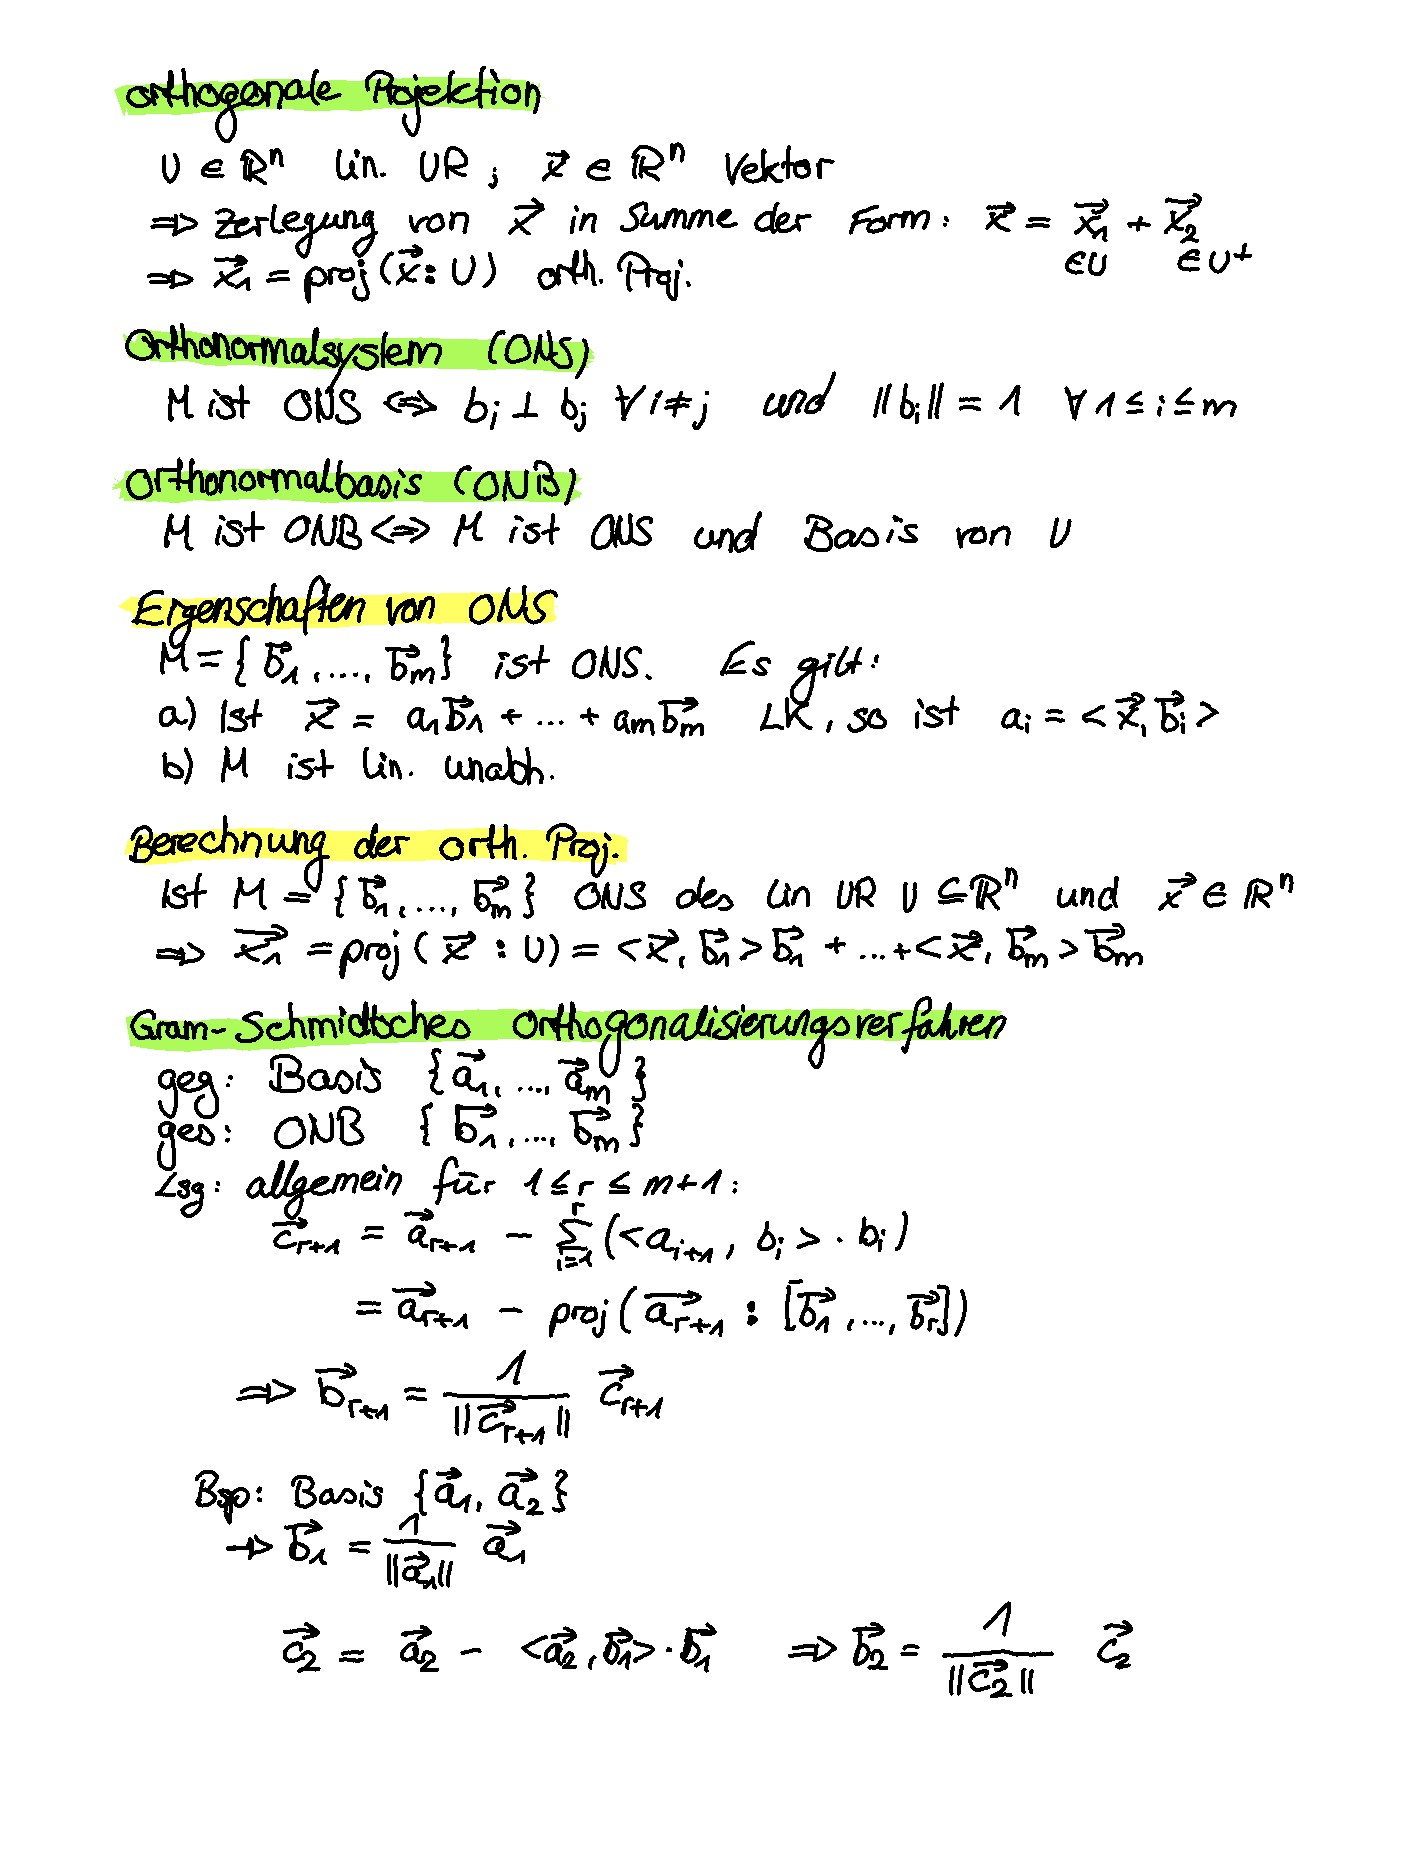 orthogonale Projektion
U ∈ ℝⁿ lin. UR ; x⃗ ∈ ℝⁿ Vektor
⇒ Zerlegung von x⃗ in Summe der Form: x⃗ = x⃗₁ + x⃗₂
∈U ∈U⊥
⇒ x⃗₁ = proj(x⃗ : U) orth. Proj.
Orthonormalsystem (ONS)
M ist ONS ⇔ bᵢ ⊥ bⱼ ∀ i ≠ j und ||bᵢ|| = 1 ∀ 1 ≤ i ≤ m
Orthonormalbasis (ONB)
M ist ONB ⇔ M ist ONS und Basis von U
Eigenschaften von ONS
M = { b⃗₁, ..., b⃗ₘ } ist ONS. Es gilt:
a) Ist x⃗ = a₁b⃗₁ + ... + aₘb⃗ₘ LK, so ist aᵢ = <x⃗, b⃗ᵢ>
b) M ist lin. unabh.
Berechnung der orth. Proj.
Ist M = { b⃗₁, ..., b⃗ₘ } ONS des lin UR U ⊆ ℝⁿ und x⃗ ∈ ℝⁿ
⇒ x⃗₁ = proj( x⃗ : U) = <x⃗, b⃗₁> b⃗₁ + ... + <x⃗, b⃗ₘ> b⃗ₘ
Gram-Schmidtsches Orthogonalisierungsverfahren
geg: Basis { a⃗₁, ..., a⃗ₘ }
ges: ONB { b⃗₁, ..., b⃗ₘ }
Lsg: allgemein für 1 ≤ r ≤ m+1:
c⃗ᵣ₊₁ = a⃗ᵣ₊₁ − Σᵢ₌₁ʳ (<aᵢ₊₁, bᵢ> · bᵢ)
= a⃗ᵣ₊₁ − proj( a⃗ᵣ₊₁ : [b⃗₁, ..., b⃗ᵣ])
⇒ b⃗ᵣ₊₁ = 1/||c⃗ᵣ₊₁|| c⃗ᵣ₊₁
Bsp: Basis { a⃗₁, a⃗₂ }
→ b⃗₁ = 1/||a⃗₁|| a⃗₁
c⃗₂ = a⃗₂ − <a⃗₂, b⃗₁> · b⃗₁ ⇒ b⃗₂ = 1/||c⃗₂|| c⃗₂